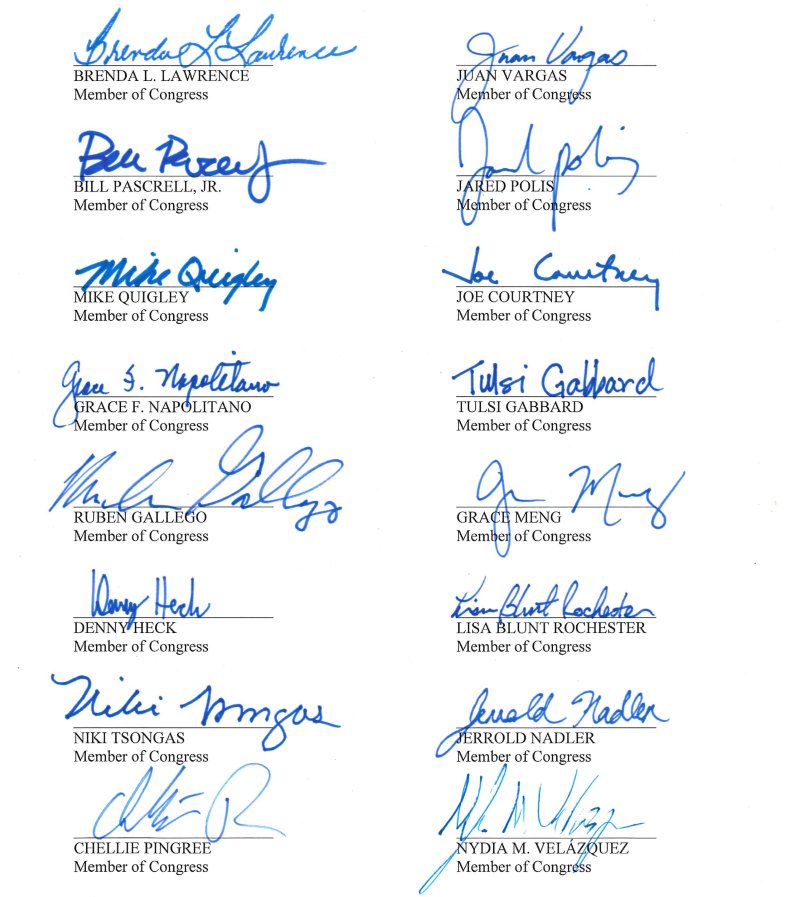 Brenda L Lawrence
BRENDA L. LAWRENCE
Member of Congress
Juan Vargas
JUAN VARGAS
Member of Congress
BILL PASCRELL, JR.
Member of Congress
Jared Polis
JARED POLIS
Member of Congress
Mike Quigley
MIKE QUIGLEY
Member of Congress
Joe Courtney
JOE COURTNEY
Member of Congress
Grace F. Napolitano
GRACE F. NAPOLITANO
Member of Congress
Tulsi Gabbard
TULSI GABBARD
Member of Congress
RUBEN GALLEGO
Member of Congress
GRACE MENG
Member of Congress
Denny Heck
DENNY HECK
Member of Congress
Lisa Blunt Rochester
LISA BLUNT ROCHESTER
Member of Congress
Niki Tsongas
NIKI TSONGAS
Member of Congress
Jerrold Nadler
JERROLD NADLER
Member of Congress
CHELLIE PINGREE
Member of Congress
NYDIA M. VELÁZQUEZ
Member of Congress